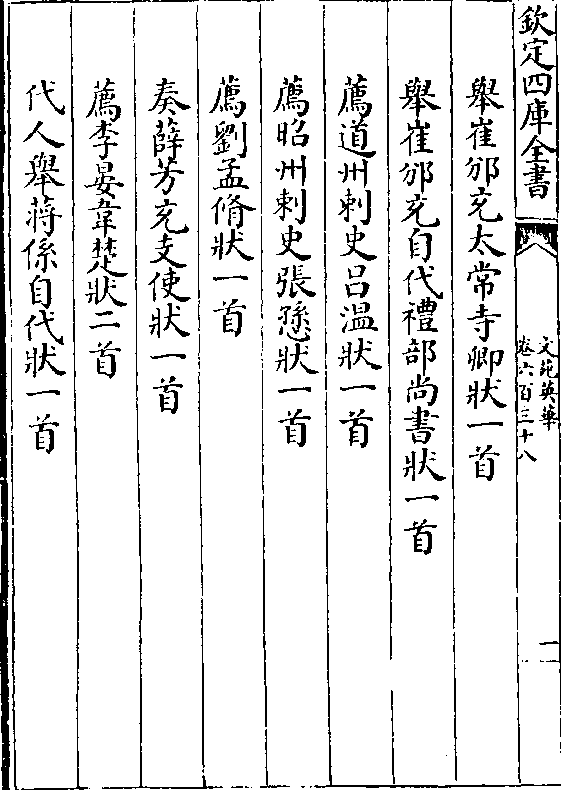 欽定四庫全書
文苑英華
卷六百三十八
一
舉崔邠充太常寺卿狀一首
舉崔邠充自代禮部尚書狀一首
薦道州刺史呂温狀一首
薦昭州刺史張愻狀一首
薦劉孟脩狀一首
奏薛芳充支使狀一首
薦李晏韋楚狀二首
代人舉蔣係自代狀一首